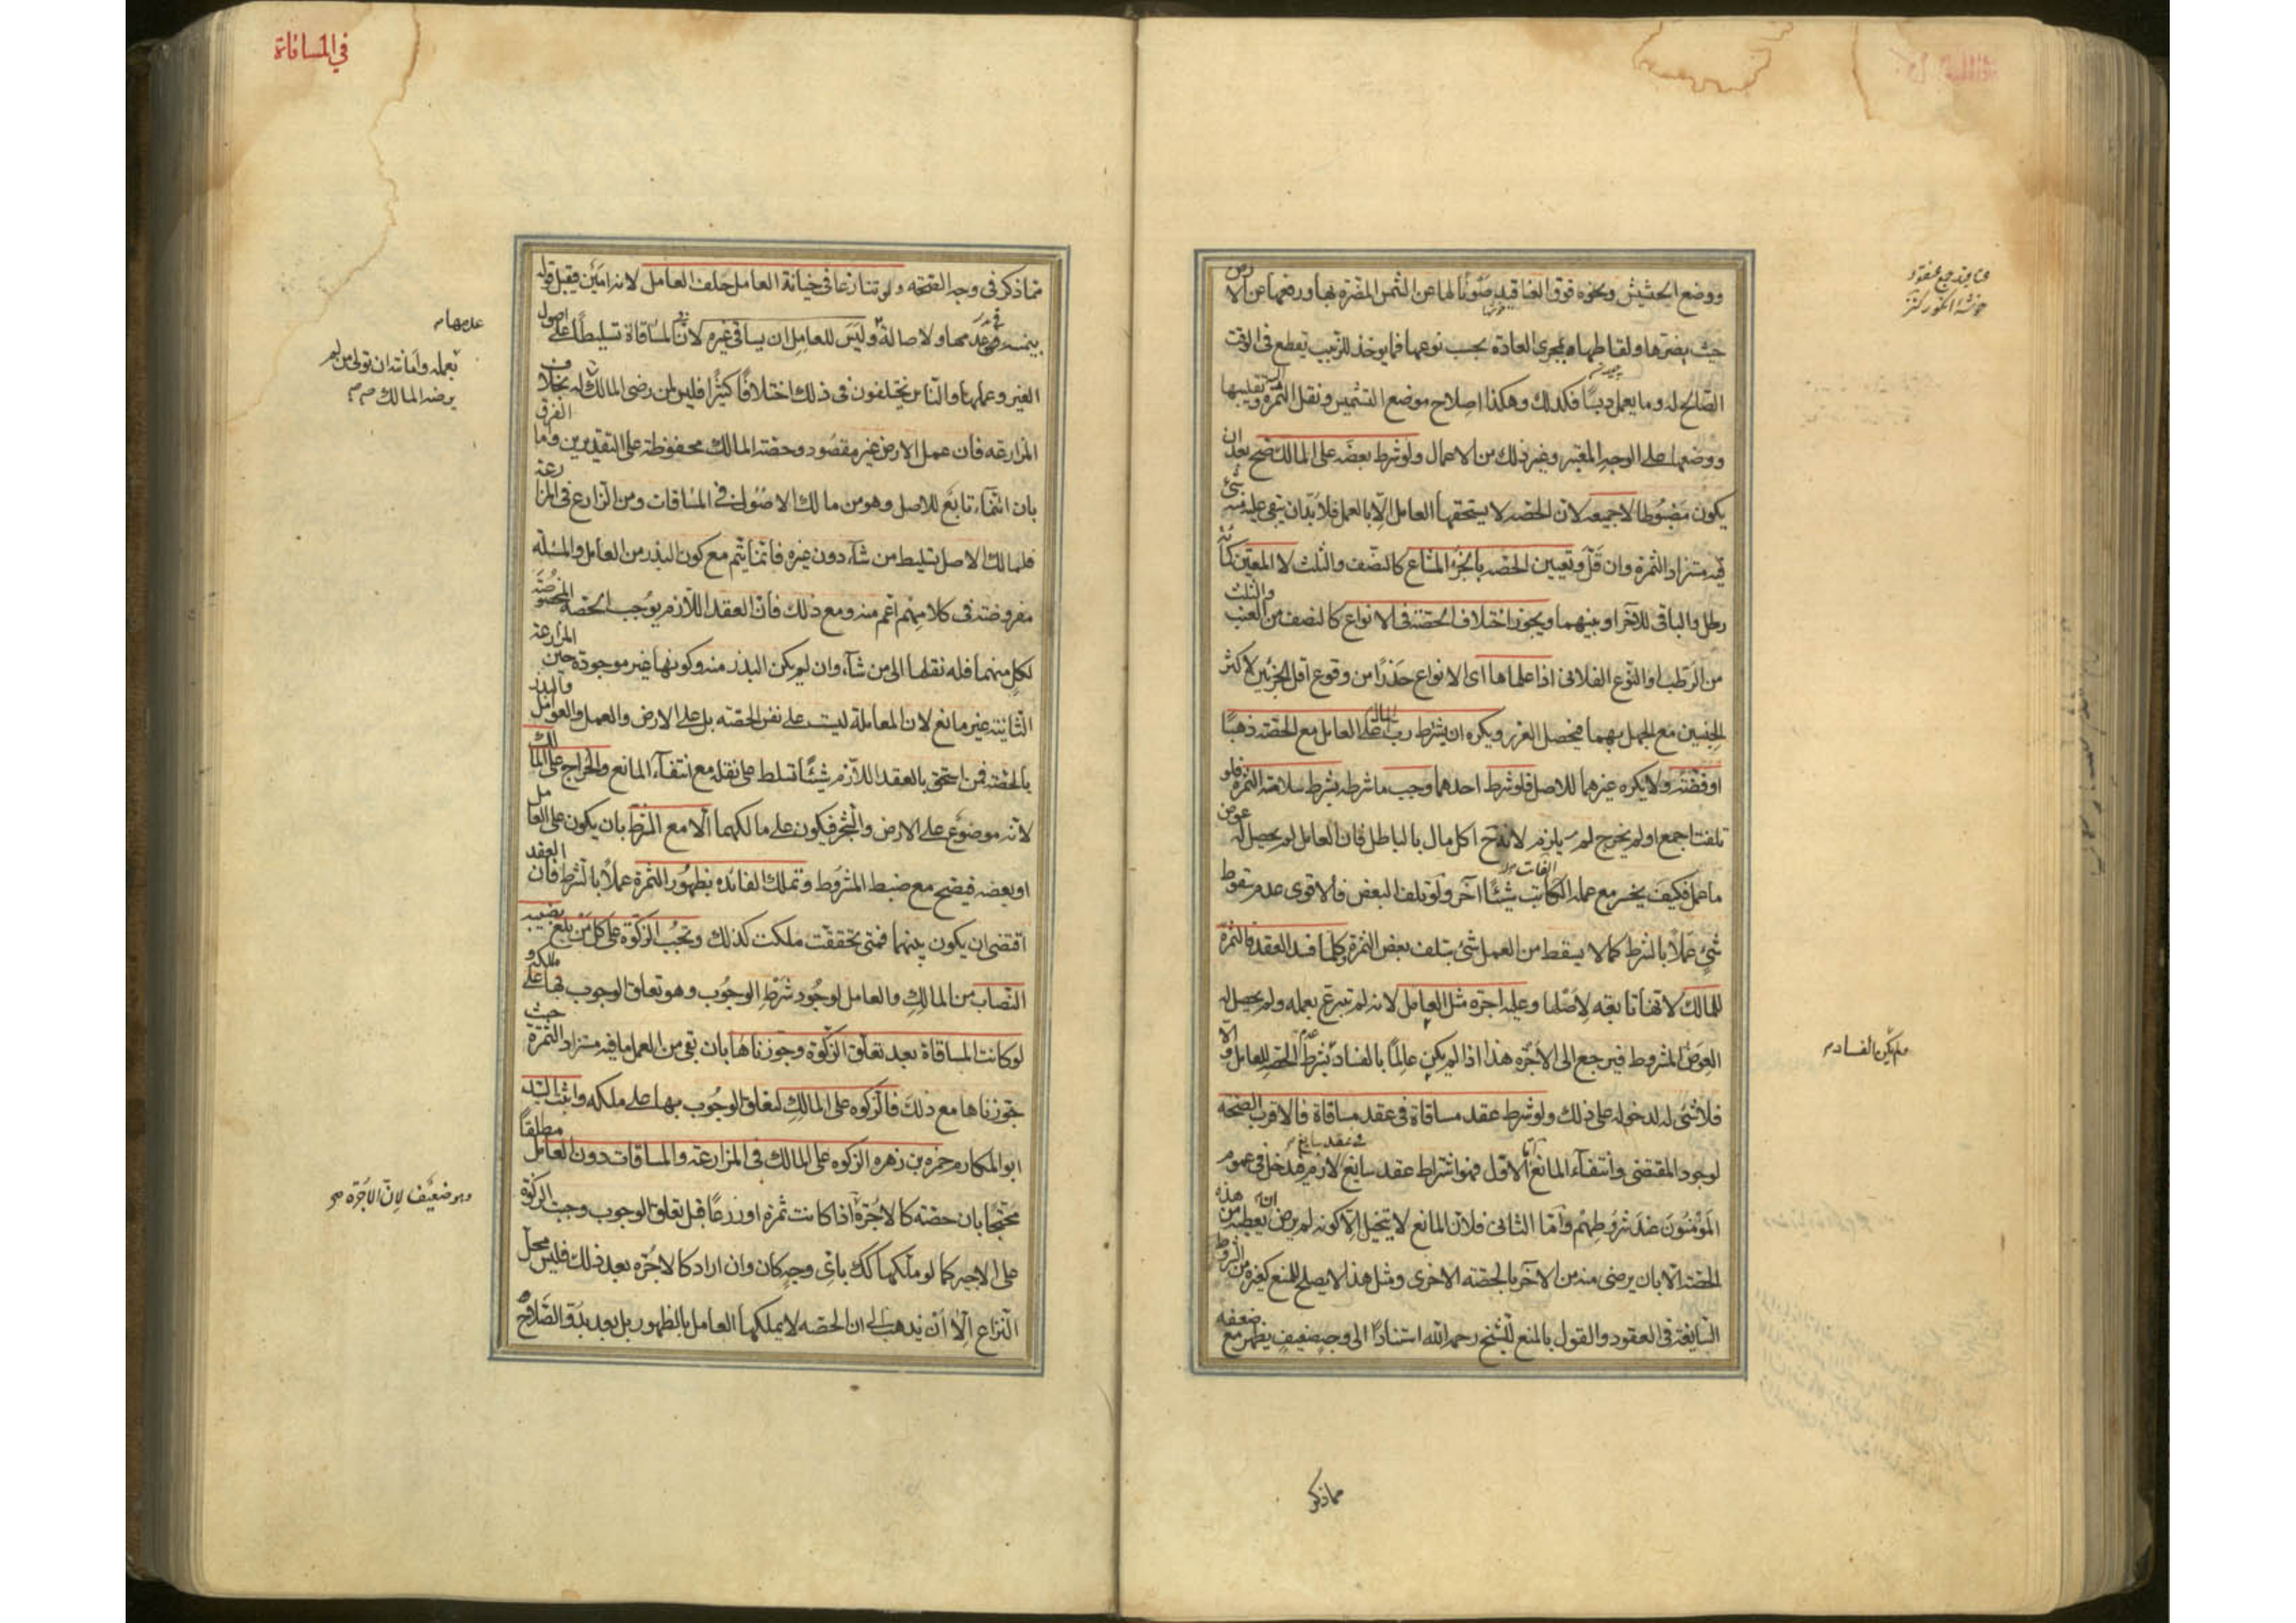 ووضع الحشيش ونحوه فوق العناقيد صونا لها عن الشمس المضرة بها ورفعها عن الارض
حيث يضرها ولقاطها بمجرى العادة بحسب نوعها فما يوخذ للزبيب يقطع فى الوقت
الصالح له وما يعمل دبسا فكذلك وهكذا اصلاح موضع التشميس ونقل الثمرة اليه وتقليبها
ووضعها على الوجه المعتبر وغير ذلك من الاعمال ولو شرط بعضه على المالك صح بعد ان
يكون مضبوطا لا جميعه لان الحصه لا يستحقها العامل الا بالعمل فلا بد ان يبقى عليه منه شئ
فيه مستزاد الثمرة وان قل وتعيين الحصه بالجزء المشاع كالنصف والثلث لا المعين كمائة
رطل والباقى للآخر او بينهما ويجوز اختلاف الحصة فى الانواع كالنصف من العنب والثلث
من الرطب او النوع الفلانى اذا علماها اى الانواع حذرا من وقوع اقل الجزئين لاكثر
الجنسين مع الجهل بهما فيحصل الغرر ويكره ان يشترط رب المال على العامل مع الحصة ذهبا
او فضة ولا يكره غيرهما للاصل فلو شرط احدهما وجب ما شرطه بشرط سلامة الثمرة فلو
تلفت اجمع او لم يخرج لم يلزم لانه ح اكل مال بالباطل فان العامل لم يحصل له عوض
ما عمل فكيف يخسر مع عمله الفائت شيئا آخر ولو تلف البعض فالاقوى عدم سقوط
شئ عملا بالشرط كما لا يسقط من العمل شئ بتلف بعض الثمرة وكلما فسد العقد فالثمرة
للمالك لانها تابعه لاصلها وعليه اجرة مثل العامل لانه لم تبرع بعمله ولم يحصل له
العوض المشروط فيرجع الى الاجره هذا اذا لم يكن عالما بالفساد بشرط عدم الحصه للعامل والا
فلا شئ له لدخوله على ذلك ولو شرط عقد مساقاة فى عقد مساقاة فالاقرب الصحه
لوجود المقتضى وانتفاء المانع اما الاول فهو اشتراط عقد سايغ فى عقد سايغ لازم فيدخل فى عموم
المؤمنون عند شروطهم واما الثانى فلان المانع لا يتخيل الا كونه لم يرض ان يعطيه من هذه
الحصة الا بان يرضى منه من الآخر بالحصة الاخرى ومثل هذا لا يصلح للمنع كغيره من الشروط
السايغة فى العقود والقول بالمنع للشيخ رحمه الله استنادا الى وجه ضعيف يظهر مع ضعفه
مما ذكر
فى المساقاة
مما ذكر فى وجه الصحة ولو تنازعا فى خيانة العامل حلف العامل لانه امين فيقبل قوله
وليس للعامل ان يساقى غيره لان فى المساقاة تسليطا على اصول
الغير وعملها والناس يختلفون فى ذلك اختلافا كثيرا فليس لمن رضى المالك له بخلاف
المزارعه فان عمل الارض غير مقصود وحصة المالك محفوظة على التقديرين واما الفرق
بان النماء تابع للاصل وهو من مالك الاصول فى المساقات ومن الزارع فى المزارعة
فلمالك الاصل تسليط من شاء دون غيره فانما يتم مع كون البذر من العامل والمسئلة
مفروضة فى كلامهم اعم منه ومع ذلك فان العقد اللازم يوجب الحصة المخصوصة
لكل منهما فله نقلها الى من شاء وان لم يكن البذر منه وكونها غير موجودة حين المزارعة
الثانية غير مانع لان المعاملة ليست على نفس الحصة بل على الارض والعمل والعوامل والبذر
بالحصة فمن استحق بالعقد اللازم شيئا تسلط على نقله مع انتفاء المانع والخراج على المالك
لانه موضوع على الارض والشجر فيكون على مالكهما الا مع الشرط بان يكون على العامل
او بعضه فيصح مع ضبط المشروط وتملك الفائده بظهور الثمرة عملا بالشرط فان العقد
اقتضى ان يكون بينهما فمتى تحققت ملكت كذلك وتجب الزكوة على كل من بلغ نصيبه
النصاب من المالك والعامل لوجود شرط الوجوب وهو تعلق الوجوب بها على ملكه و
لو كانت المساقاة بعد تعلق الزكوة وجوزناها بان بقى من العمل ما فيه مستزاد الثمرة حيث
جوزناها مع ذلك فالزكوه على المالك لتعلق الوجوب بها على ملكه واثبت السيد
ابو المكارم حمزه بن زهره الزكوه على المالك فى المزارعة والمساقات دون العامل مطلقا
محتجا بان حصته كالاجرة اذا كانت ثمرة او زرعا قبل تعلق الوجوب وجبت الزكوة
على الاجير كما لو ملكها كك باى وجه كان وان اراد كالاجره بعد ذلك فليس محل
النزاع الا ان يذهب الى ان الحصه لا يملكها العامل بالظهور بل بعد بدو الصلاح
بعمله وامانته ان تولى من لم
يرضه المالك
وهو ضعيف لان الاجرة